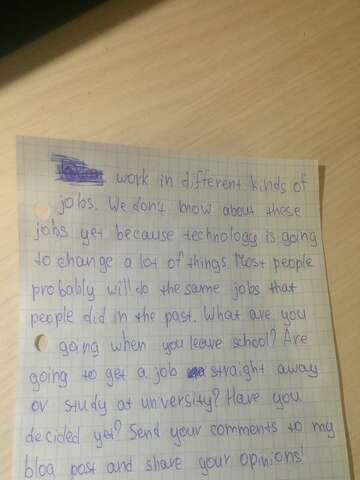 work in different kinds of
jobs. We don't know about these
jobs yet because technology is going
to change a lot of things. Most people
probably will do the same jobs that
people did in the past. What are you
going when you leave school? Are
going to get a job straight away
or study at unversity? Have you
decided yet? Send your comments to my
blog post and share your opinions!